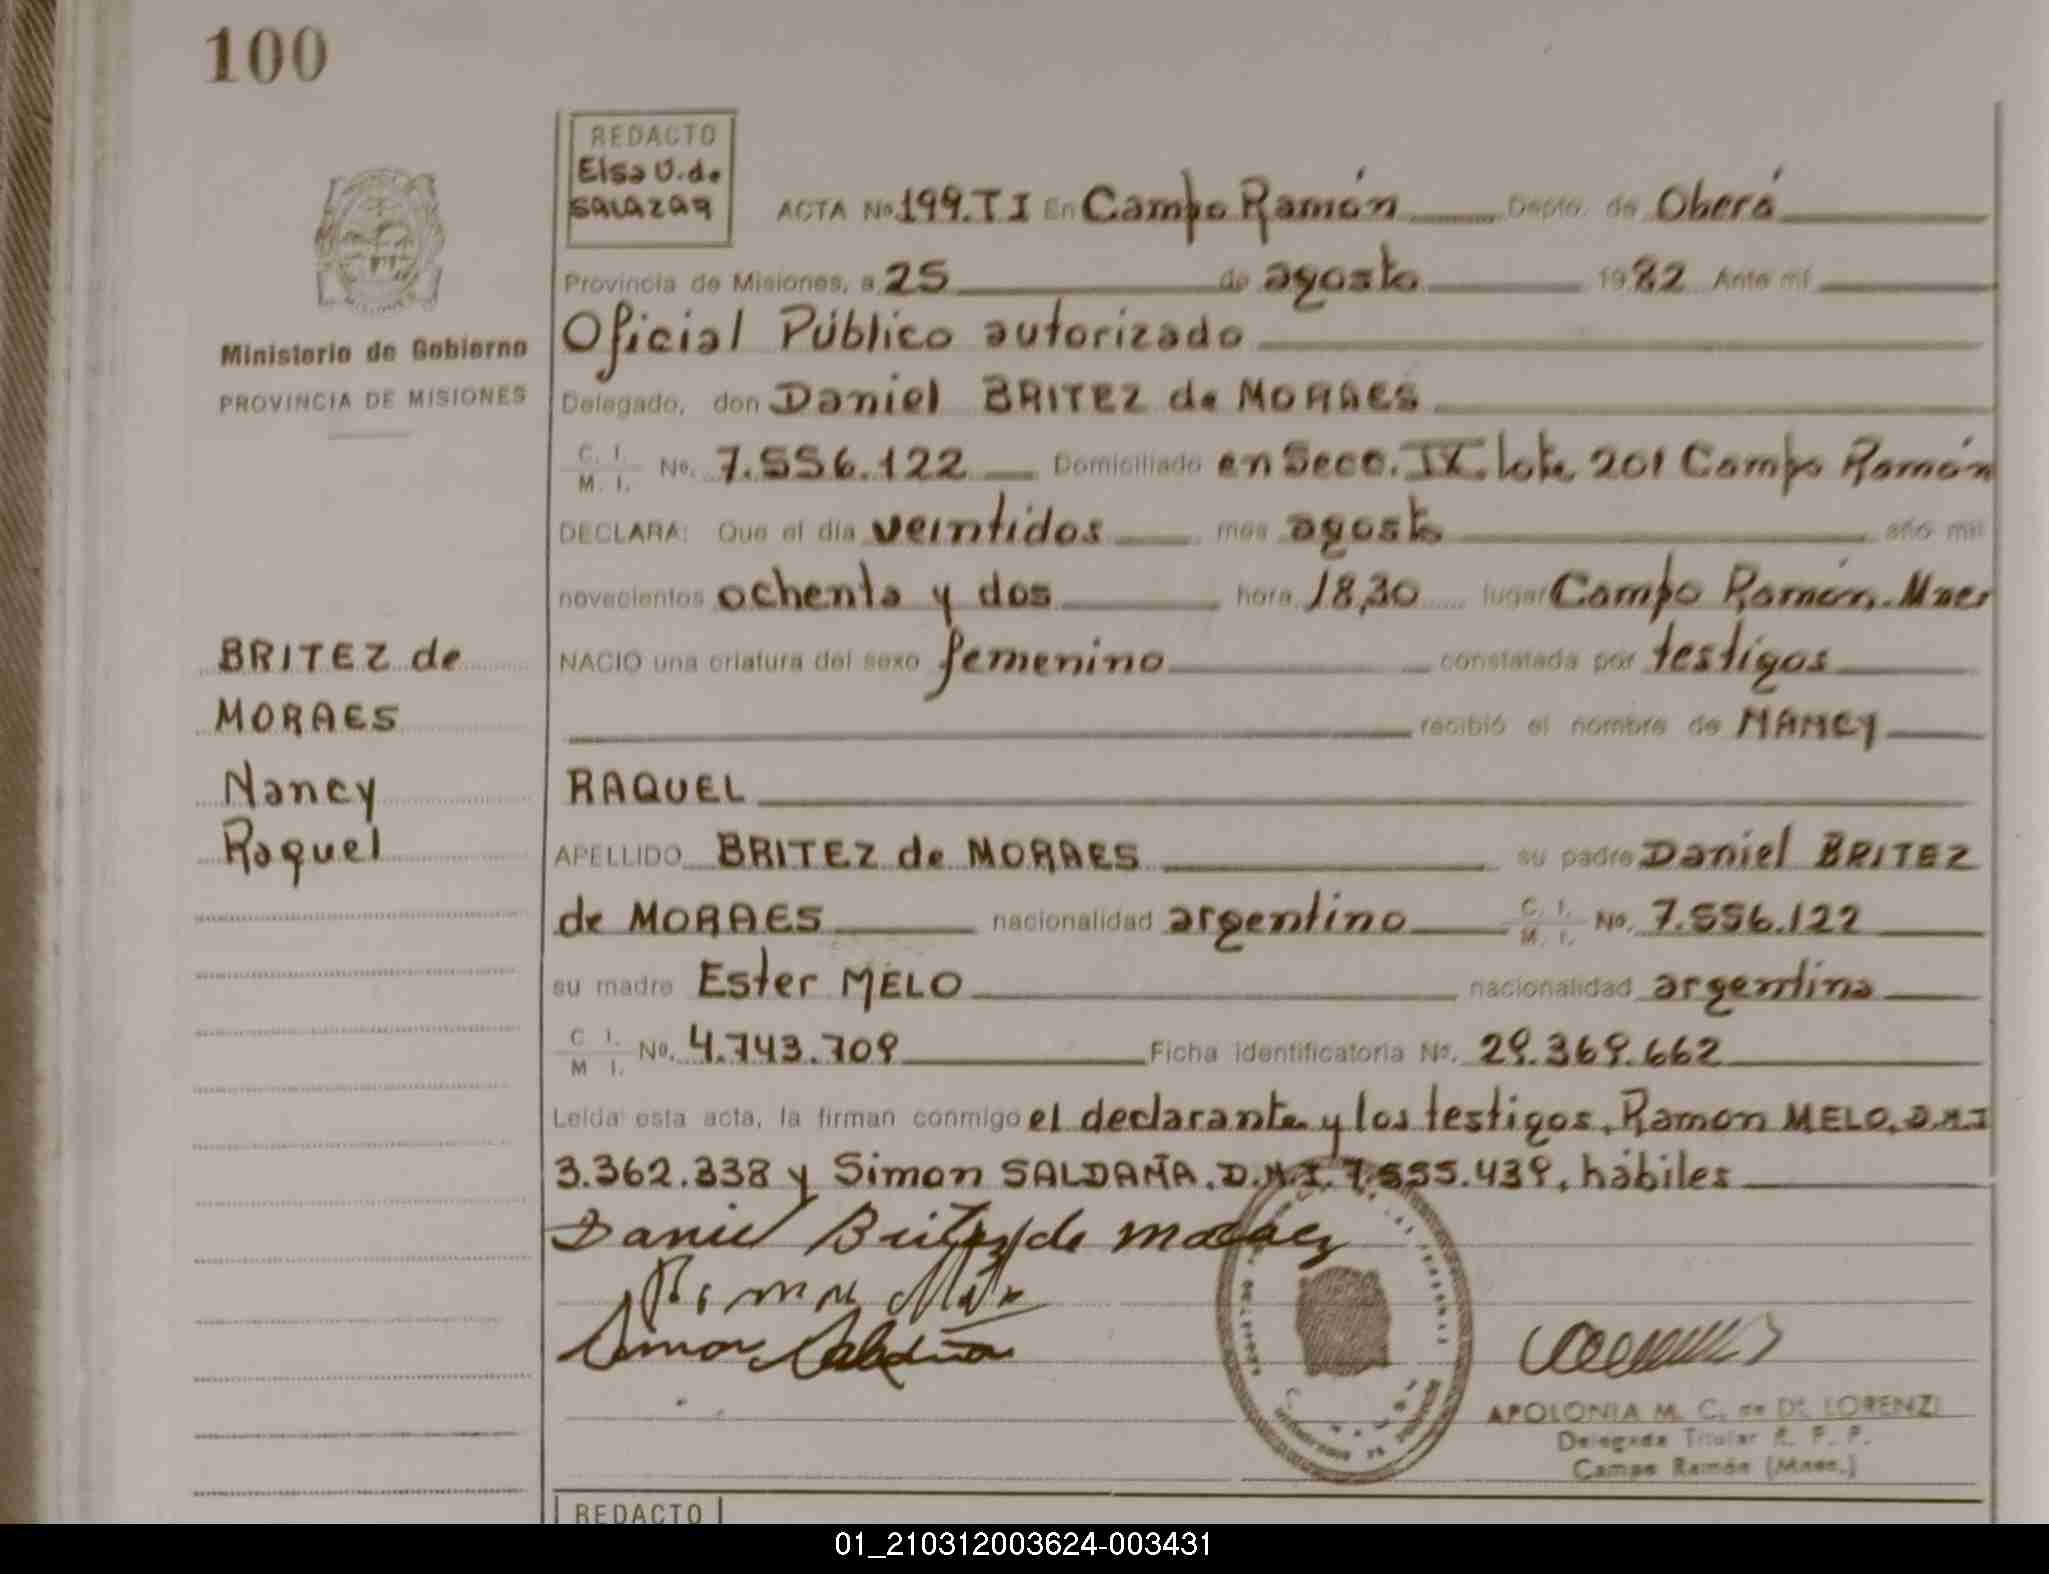 100
REDACTO
Elsa U. de
SALAZAR
ACTA No 199.T I En Campo Ramón Depto. de Oberá
Provincia de Misiones, a 25 de agosto 1982 Ante mí
Oficial Público autorizado
Ministerio de Gobierno
PROVINCIA DE MISIONES
Delegado, don Daniel BRITEZ de MORAES
C. I.
M. I. No. 7.556.122 Domiciliado en Secc. IX lote 201 Campo Ramón
DECLARA: Que el día veintidos mes agosto año mil
novecientos ochenta y dos hora 18,30 lugar Campo Ramón. Mnes
BRITEZ de
MORAES
Nancy
Raquel
NACIO una criatura del sexo femenino constatada por testigos
recibió el nombre de NANCY
RAQUEL
APELLIDO BRITEZ de MORAES su padre Daniel BRITEZ
de MORAES nacionalidad argentino C. I. M. I. No. 7.556.122
su madre Ester MELO nacionalidad argentina
C I.
M I. No. 4.743.709 Ficha identificatoria No. 29.369.662
Leída esta acta, la firman conmigo el declarante y los testigos, Ramon MELO, D.N.I
3.362.338 y Simon SALDAÑA. D.N.I. 7.555.439, hábiles
Daniel Britez de moraez
Simon Saldaña
APOLONIA M. C. de DE LORENZI
Delegada Titular R. P. P.
Campo Ramón (Mnes.)
REDACTO
01_210312003624-003431